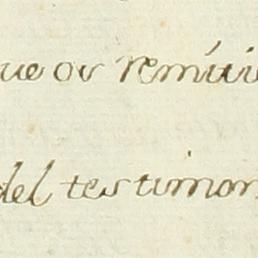 ue os remiti
del testimon